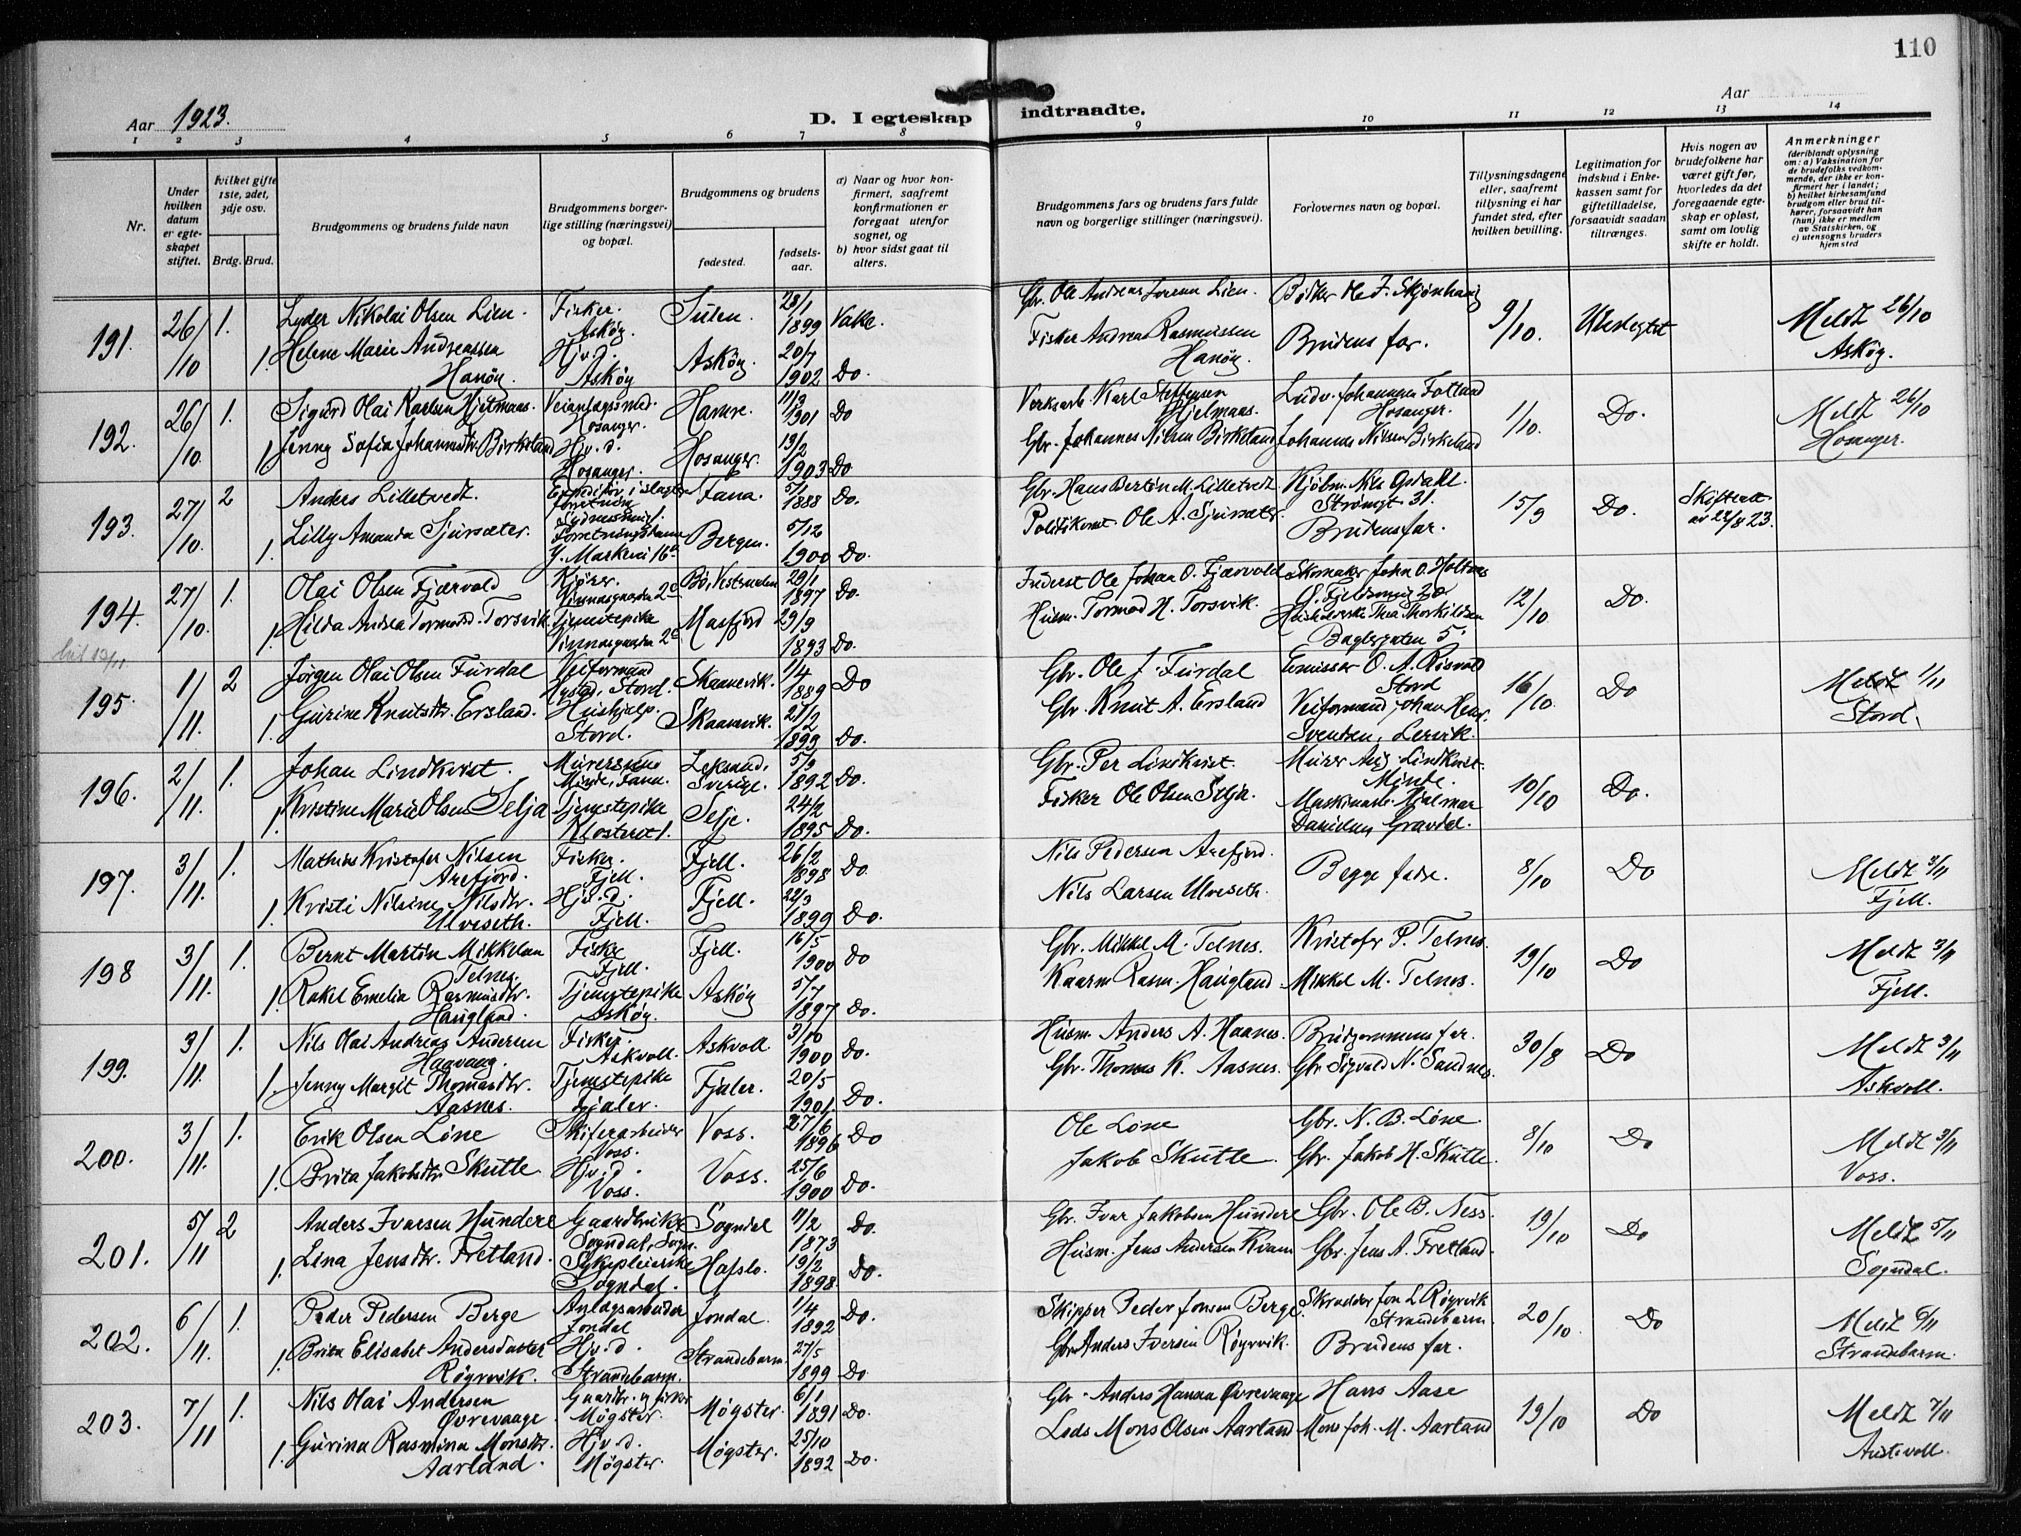 110
Aar 1923.
D. I egteskap indtraadte.
Aar
1 2 3 4 5 6 7 8 9 10 11 12 13 14
Nr.
Under hvilken datum er egteskapet stiftet.
hvilket gifte 1ste, 2det, 3dje osv.
Brdg. Brud.
Brudgommens og brudens fulde navn
Brudgommens borgerlige stilling (næringsvei) og bopæl.
Brudgommens og brudens
fødested.
fødselsaar.
a) Naar og hvor konfirmert, saafremt konfirmationen er foregaat utenfor sognet, og
b) hvor sidst gaat til alters.
Brudgommens fars og brudens fars fulde navn og borgerlige stillinger (næringsvei).
Forlovernes navn og bopæl.
Tillysningsdagene eller, saafremt tillysning ei har fundet sted, efter hvilken bevilling.
Legitimation for indskud i Enkekassen samt for giftetilladelse, forsaavidt saadan tiltrænges.
Hvis nogen av brudefolkene har været gift før, hvorledes da det foregaaende egteskap er opløst, samt om lovlig skifte er holdt.
Anmerkninger
(deriblandt oplysning om: a) Vaksination for de brudefolks vedkommende, der ikke er konfirmert her i landet; b) hvilket kirkesamfund brudgom eller brud tilhører, forsaavidt han (hun) ikke er medlem av Statskirken, og c) utensogns bruders hjemsted
191. 26/10 1. Lyder Nikolai Olsen Lien. Fisker. Askøy. Sulen. 28/1 1899 Vake. Gbr. Ole Andreas Lien. Bødker Ole J. 9/10. Ubeslegtet Meldt 26/10 Askøy.
1. Helene Marie Andreassen Hanøy. Hjv. d. Askøy Askøy. 20/7 1902 Do. Fisker Andreas Rasmussen Hanøy. Brudens far.
192. 26/10. 1. Sigurd Olai Karlsen Hjelmaas. Veianlægssmed. Hosanger. Hamre. 11/3 1901 Do Verksarb. Karl Steffensen Hjelmaas. Ludv. Johannesen Fotland Hosanger. 1/10. Do. Meldt 26/10 Hosanger.
1. Jenny Sofia Johannesdtr. Birkeland Hjv. d. Hosanger. Hosanger. 13/2 1903 Do Gbr. Johannes Nilsen Birkeland Johannes Nilsen Birkeland
193. 27/10. 2 Anders Lilletvedt. Expeditør i slagterforretning Fana. 5/1 1888 Do. Gbr. Hans Bertin M. Lilletvedt Kjøbm. Nils Opdahl. Strømgt 31. 15/9 Do. Skifteatt. av 22/8 23.
1. Lilly Amanda Sjursæter. Forretningsdame Y. Markevei 16 Bergen. 5/12 1900 Do. Politikonst. Ole A. Sjursæter. Brudens far.
194. 27/10. 1. Olai Olsen Fjærvold Kjører. Vinnesgaarden 2c Bø, Vestraalen 29/1 1897 Do. Inderst Ole Johan O. Fjærvold Skomaker John O. 12/10 Do.
1. Hilda Andrea Tormodsd. Torsvik. Tjenestepike Vinnesgaarden 2c Masfjord 29/9 1893 Do. Husm. Tormod H. Torsvik. Thea Thorkildsen Baglergaten 5.
195. 1/11. 2 Jørgen Olai Olsen Furdal Veiformand Stord. Skaanevik. 1/4 1889 Do Gbr. Ole J. Furdal Emissær O. A. Risvold Stord 16/10. Do Meldt 1/11 Stord.
1. Gurine Knutsdtr. Ersland. Hushjælp. Stord. Skaanevik. 21/2 1893 Do. Gbr. Knut A. Ersland Veiformand Johan Henr. Svendsen, Lervik.
196. 2/11. 1. Johan Lindkvist. Murersvend Minde, Fana. Leksand, Sverige. 5/9 1892 Do. Gbr. Per Lindkvist. Murer Aug. Lindkvist. Minde. 10/10 Do.
1. Kristine Marie Olsen Selja Tjenestepike Selje. 24/2 1895 Do. Fisker Ole Olsen Selja. Maskinarb. Hjalmar Danielsen Gravdal.
197. 3/11. 1. Mathias Kristofer Nilsen Arefjord. Fisker. Fjell. Fjell. 26/2 1898 Do. Nils Pedersen Arefjord. Begge fædre. 8/10 Do Meldt 3/11 Fjell.
1. Kristi Nilsine Nilsdtr. Ulveseth. Hjv. d. Fjell. Fjell. 22/3 1899 Do. Nils Larsen Ulveseth.
198 3/11. 1. Bernt Martin Mikkelsen Telnes. Fisker Fjell. Fjell. 16/5 1900 Do Gbr. Mikkel M. Telnes. Kristofer P. Telnes. 19/10 Do Meldt 3/11 Fjell.
1. Rakel Emelia Rasmusdtr. Haugland. Tjenestepike Askøy. Askøy 5/7 1897 Do. Kaarm. Rasm. Haugland Mikkel M. Telnes.
199. 3/11. 1. Nils Olai Andreas Andersen Haavaag. Fisker Askvoll. Askvoll 3/10 1900 Do. Husm. Anders A. Haanes. Brudgommens far. 30/8 Do Meldt 3/11 Askvoll.
1. Jenny Margit Thomasdtr. Aasnes. Tjenestepike Fjaler. Fjaler. 20/5 1901. Do. Gbr. Thomas K. Aasnes. Gbr. Sigvald N. Sandnes.
200. 3/11. 1. Erik Olsen Løne Skiferarbeider Voss. Voss. 27/6 1896 Do Ole Løne Gbr. N. B. Løne 8/10 Do Meldt 3/11 Voss.
1. Brita Jakobsdtr. Skutle. Hjv. d. Voss. Voss. 25/6 1900 Do. Jakob Skutle. Gbr. Jakob H. Skutle.
201. 5/11 2 Anders Ivarsen Hundere Gaardbruker Sogndal, Sogn. Sogndal 11/2 1873 Do. Gbr. Ivar Jakobsen Hundere Gbr. Ole B. Ness. 19/10 Do Meldt 5/11 Sogndal.
1. Lina Jensdtr. Fretland. Sykepleierske Sogndal. Hafslo. 19/2 1898. Do. Husm. Jens Andersen Kvam Gbr. Jens A. Fretland.
202. 6/11. 1. Peder Pedersen Berge Anlægsarbeider Jondal Jondal. 1/4 1892 Do. Skipper Peder Jonsen Berge. Skrædder Jon L. Røyrvik Strandebarm. 20/10 Do Meldt 6/11 Strandebarm.
1. Brita Elisabet Andersdatter Røyrvik. Hjv. d. Strandebarm. Strandebarm. 27/5 1899 Do Gbr. Anders Iversen Røyrvik. Brudens far.
203. 7/11 1. Nils Olai Andersen Øvrevaage Gaardbr. og fisker Møgster. Møgster. 6/1 1891 Do. Gbr. Anders Hansen Øvrevaage Hans Aase 19/10 Do Meldt 7/11 Austevoll.
1. Gurina Rasmina Monsdtr. Aarland. Hjv. d. Møgster. Møgster. 25/10 1892 Do. Lods Mons Olsen Aarland Mons Joh. M. Aarland